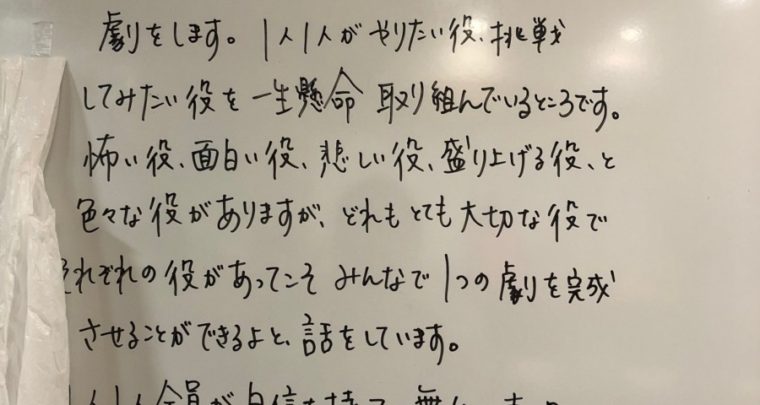 劇をします。1人1人がやりたい役、挑戦
してみたい役を一生懸命取り組んでいるところです。
怖い役、面白い役、悲しい役、盛り上げる役、と
色々な役がありますが、どれもとても大切な役で
それぞれの役があってこそみんなで1つの劇を完成
させることができるよと、話をしています。
1人1人全員が自信を持って